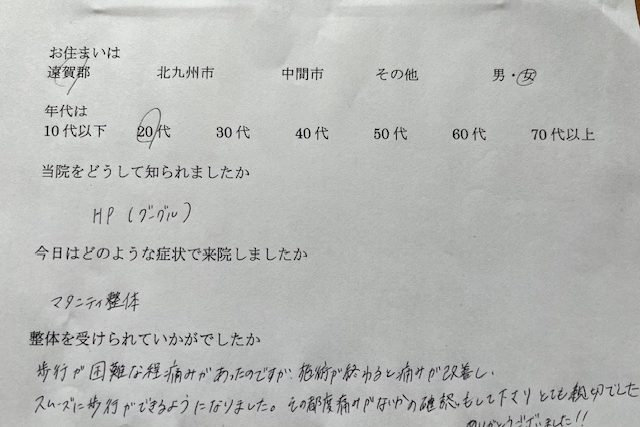 お住まいは
遠賀郡 北九州市 中間市 その他 男・女
年代は
10代以下 20代 30代 40代 50代 60代 70代以上
当院をどうして知られましたか
HP(グーグル)
今日はどのような症状で来院しましたか
マタニティ整体
整体を受けられていかがでしたか
歩行が困難な程痛みがあったのですが、施術が終わると痛みが改善し、
スムーズに歩行ができるようになりました。その都度痛みがないかの確認もして下さりとても親切でした
ありがとうございました!!